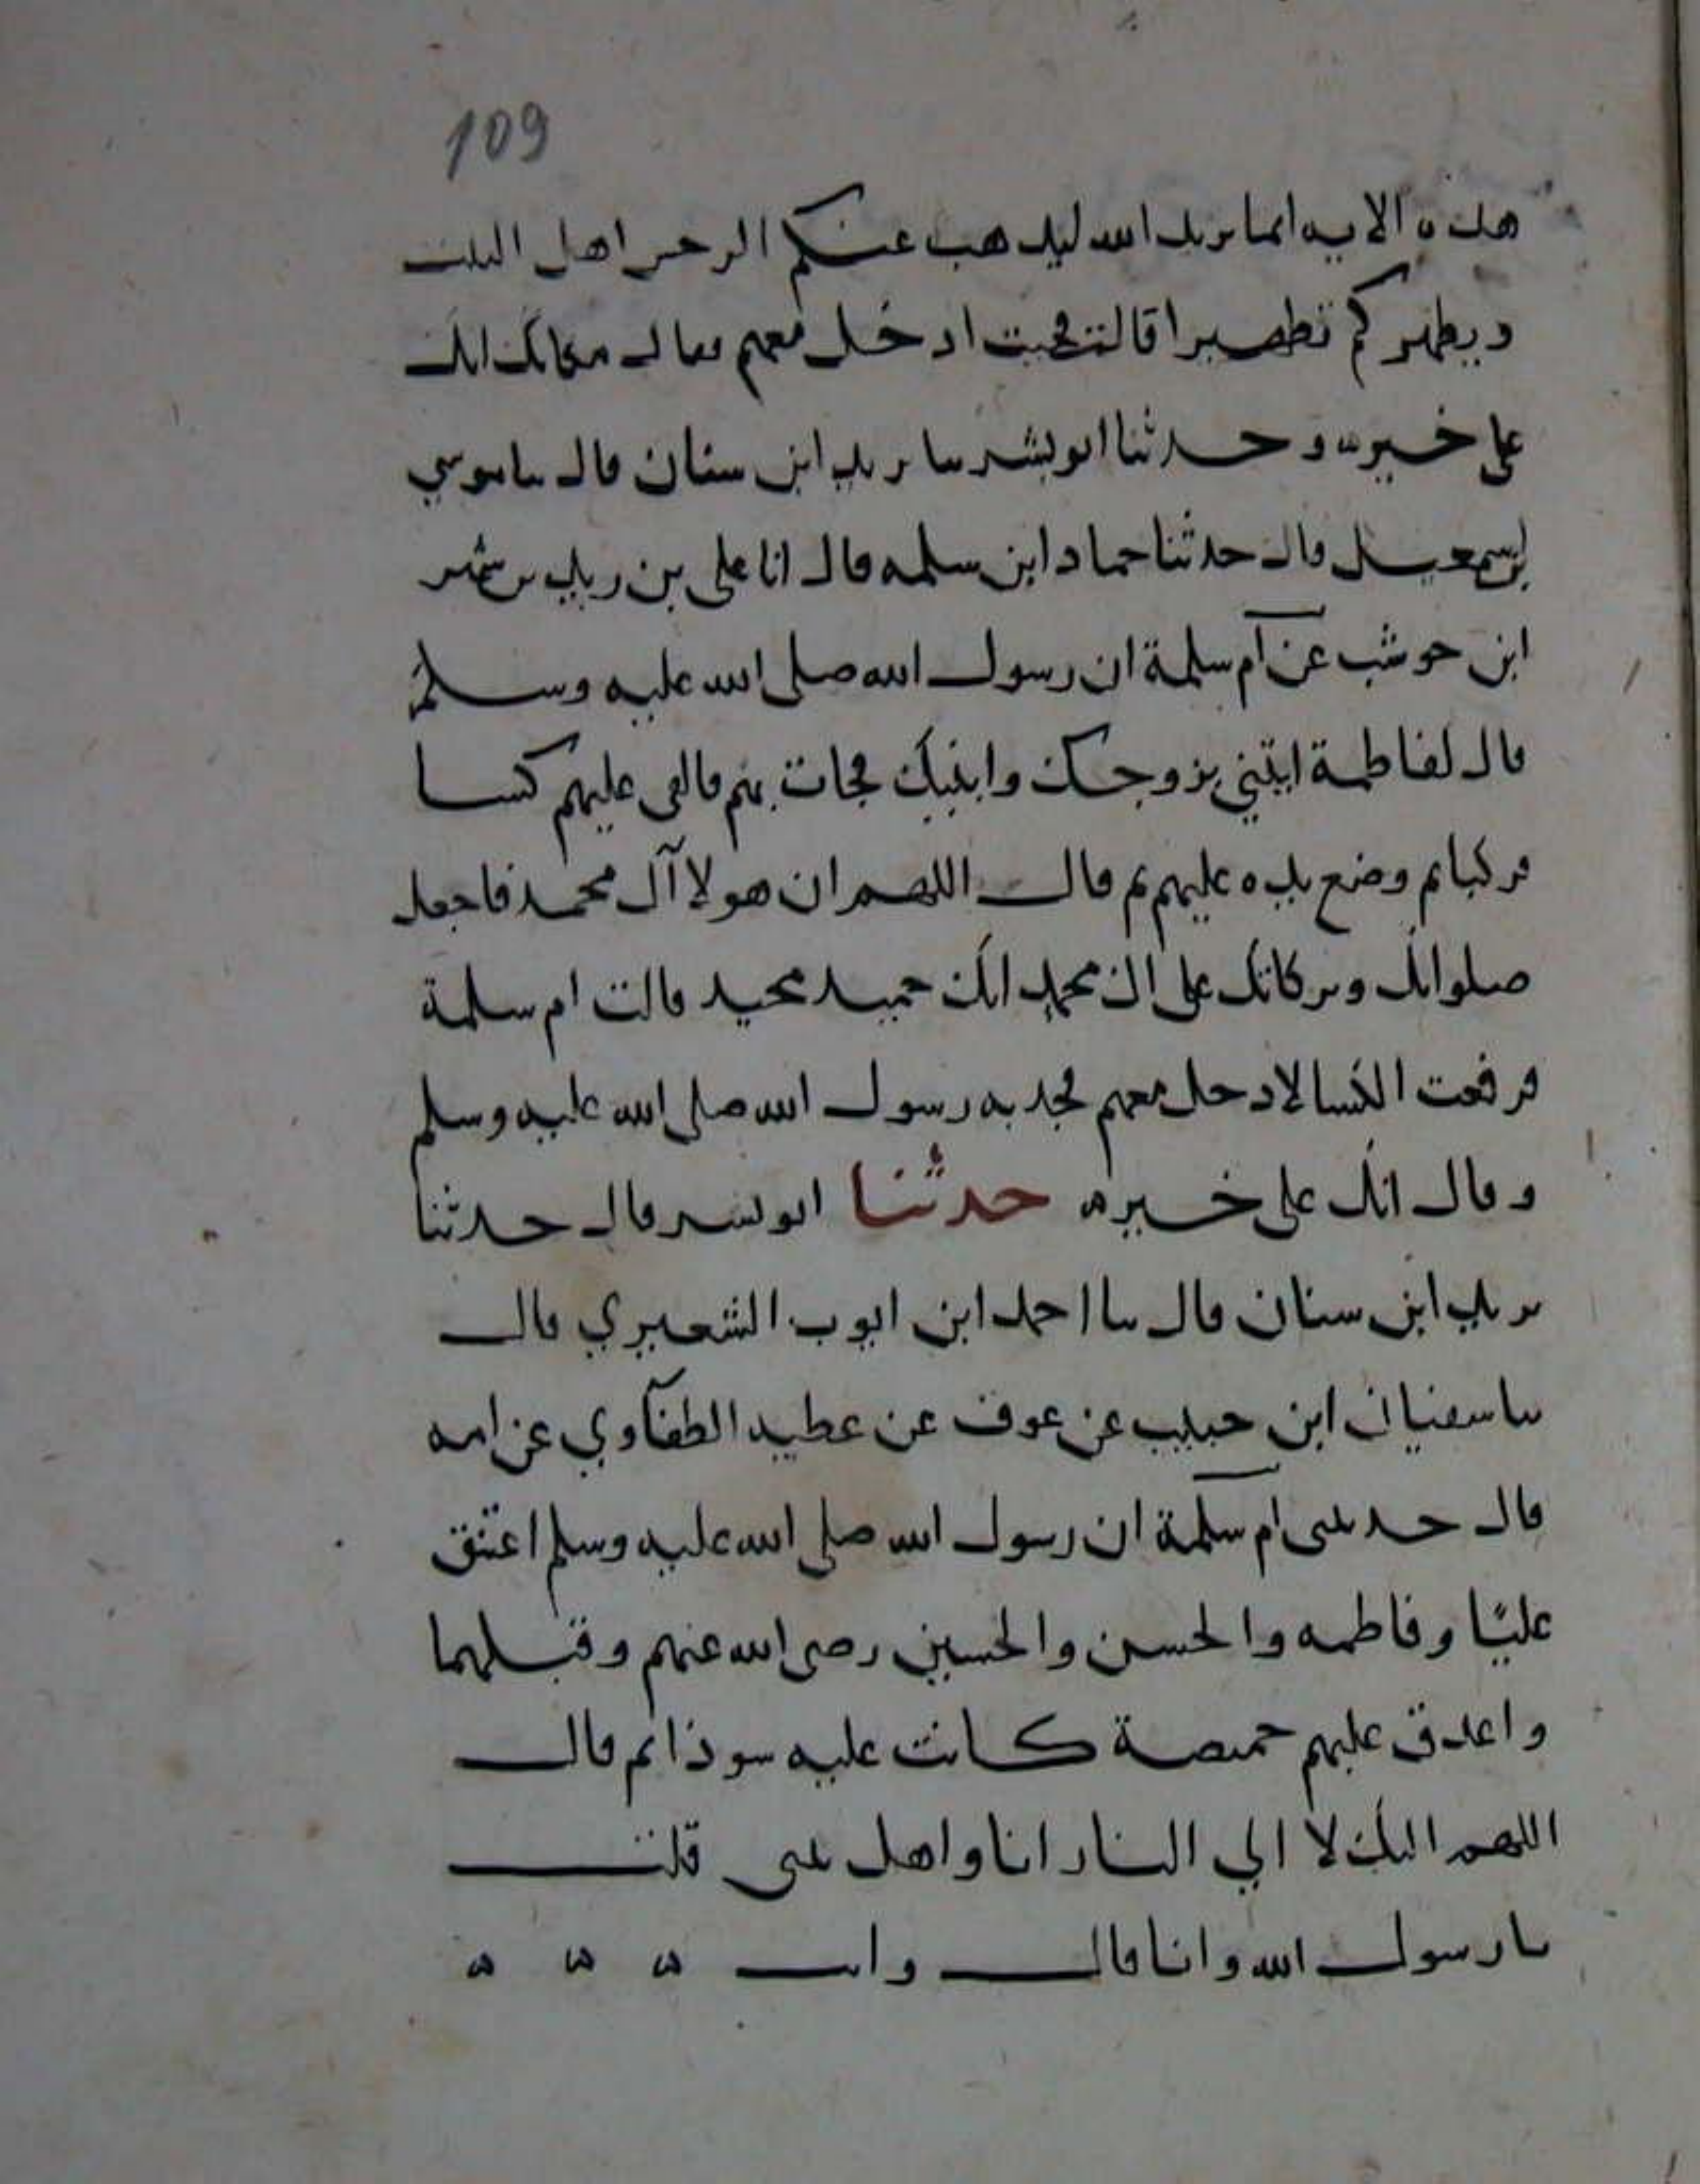 109
هذه الايه انما يريد الله ليذهب عنكم الرجس اهل البيت
ويطهركم تطهيرا قالت فجيت ادخل معهم فقال مكانك انك
على خير وحدثنا ابو بشر سا يزيد ابن سنان قال سا موسى
بن اسمعيل قال حدثنا حماد ابن سلمه قال انا على بن زيد عن شهر
ابن حوشب عن ام سلمة ان رسول الله صلى الله عليه وسلم
قال لفاطمة ايتيني بزوجك وابنيك فجات بهم فالقى عليهم كسا
ثم وضع يده عليهم ثم قال اللهم ان هولا آل محمد فاجعل
صلواتك وبركاتك على ال محمد انك حميد مجيد قالت ام سلمة
فرفعت الكسا لادخل معهم فجذبه رسول الله صلى الله عليه وسلم
وقال انك على خير حدثنا ابو بشر قال حدثنا
يزيد ابن سنان قال سا احمد ابن ايوب الشعيري قال
سا سفيان ابن حبيب عن عوف عن عطيه الطفاوي عن امه
قال حدثتني ام سلمة ان رسول الله صلى الله عليه وسلم اعتنق
عليًا وفاطمه والحسن والحسين رضى الله عنهم وقبلهما
واغدق عليهم خميصة كانت عليه سودا ثم قال
اللهم اليك لا الي النار انا واهل بيتي قلت
يا رسول الله وانا قال وانت